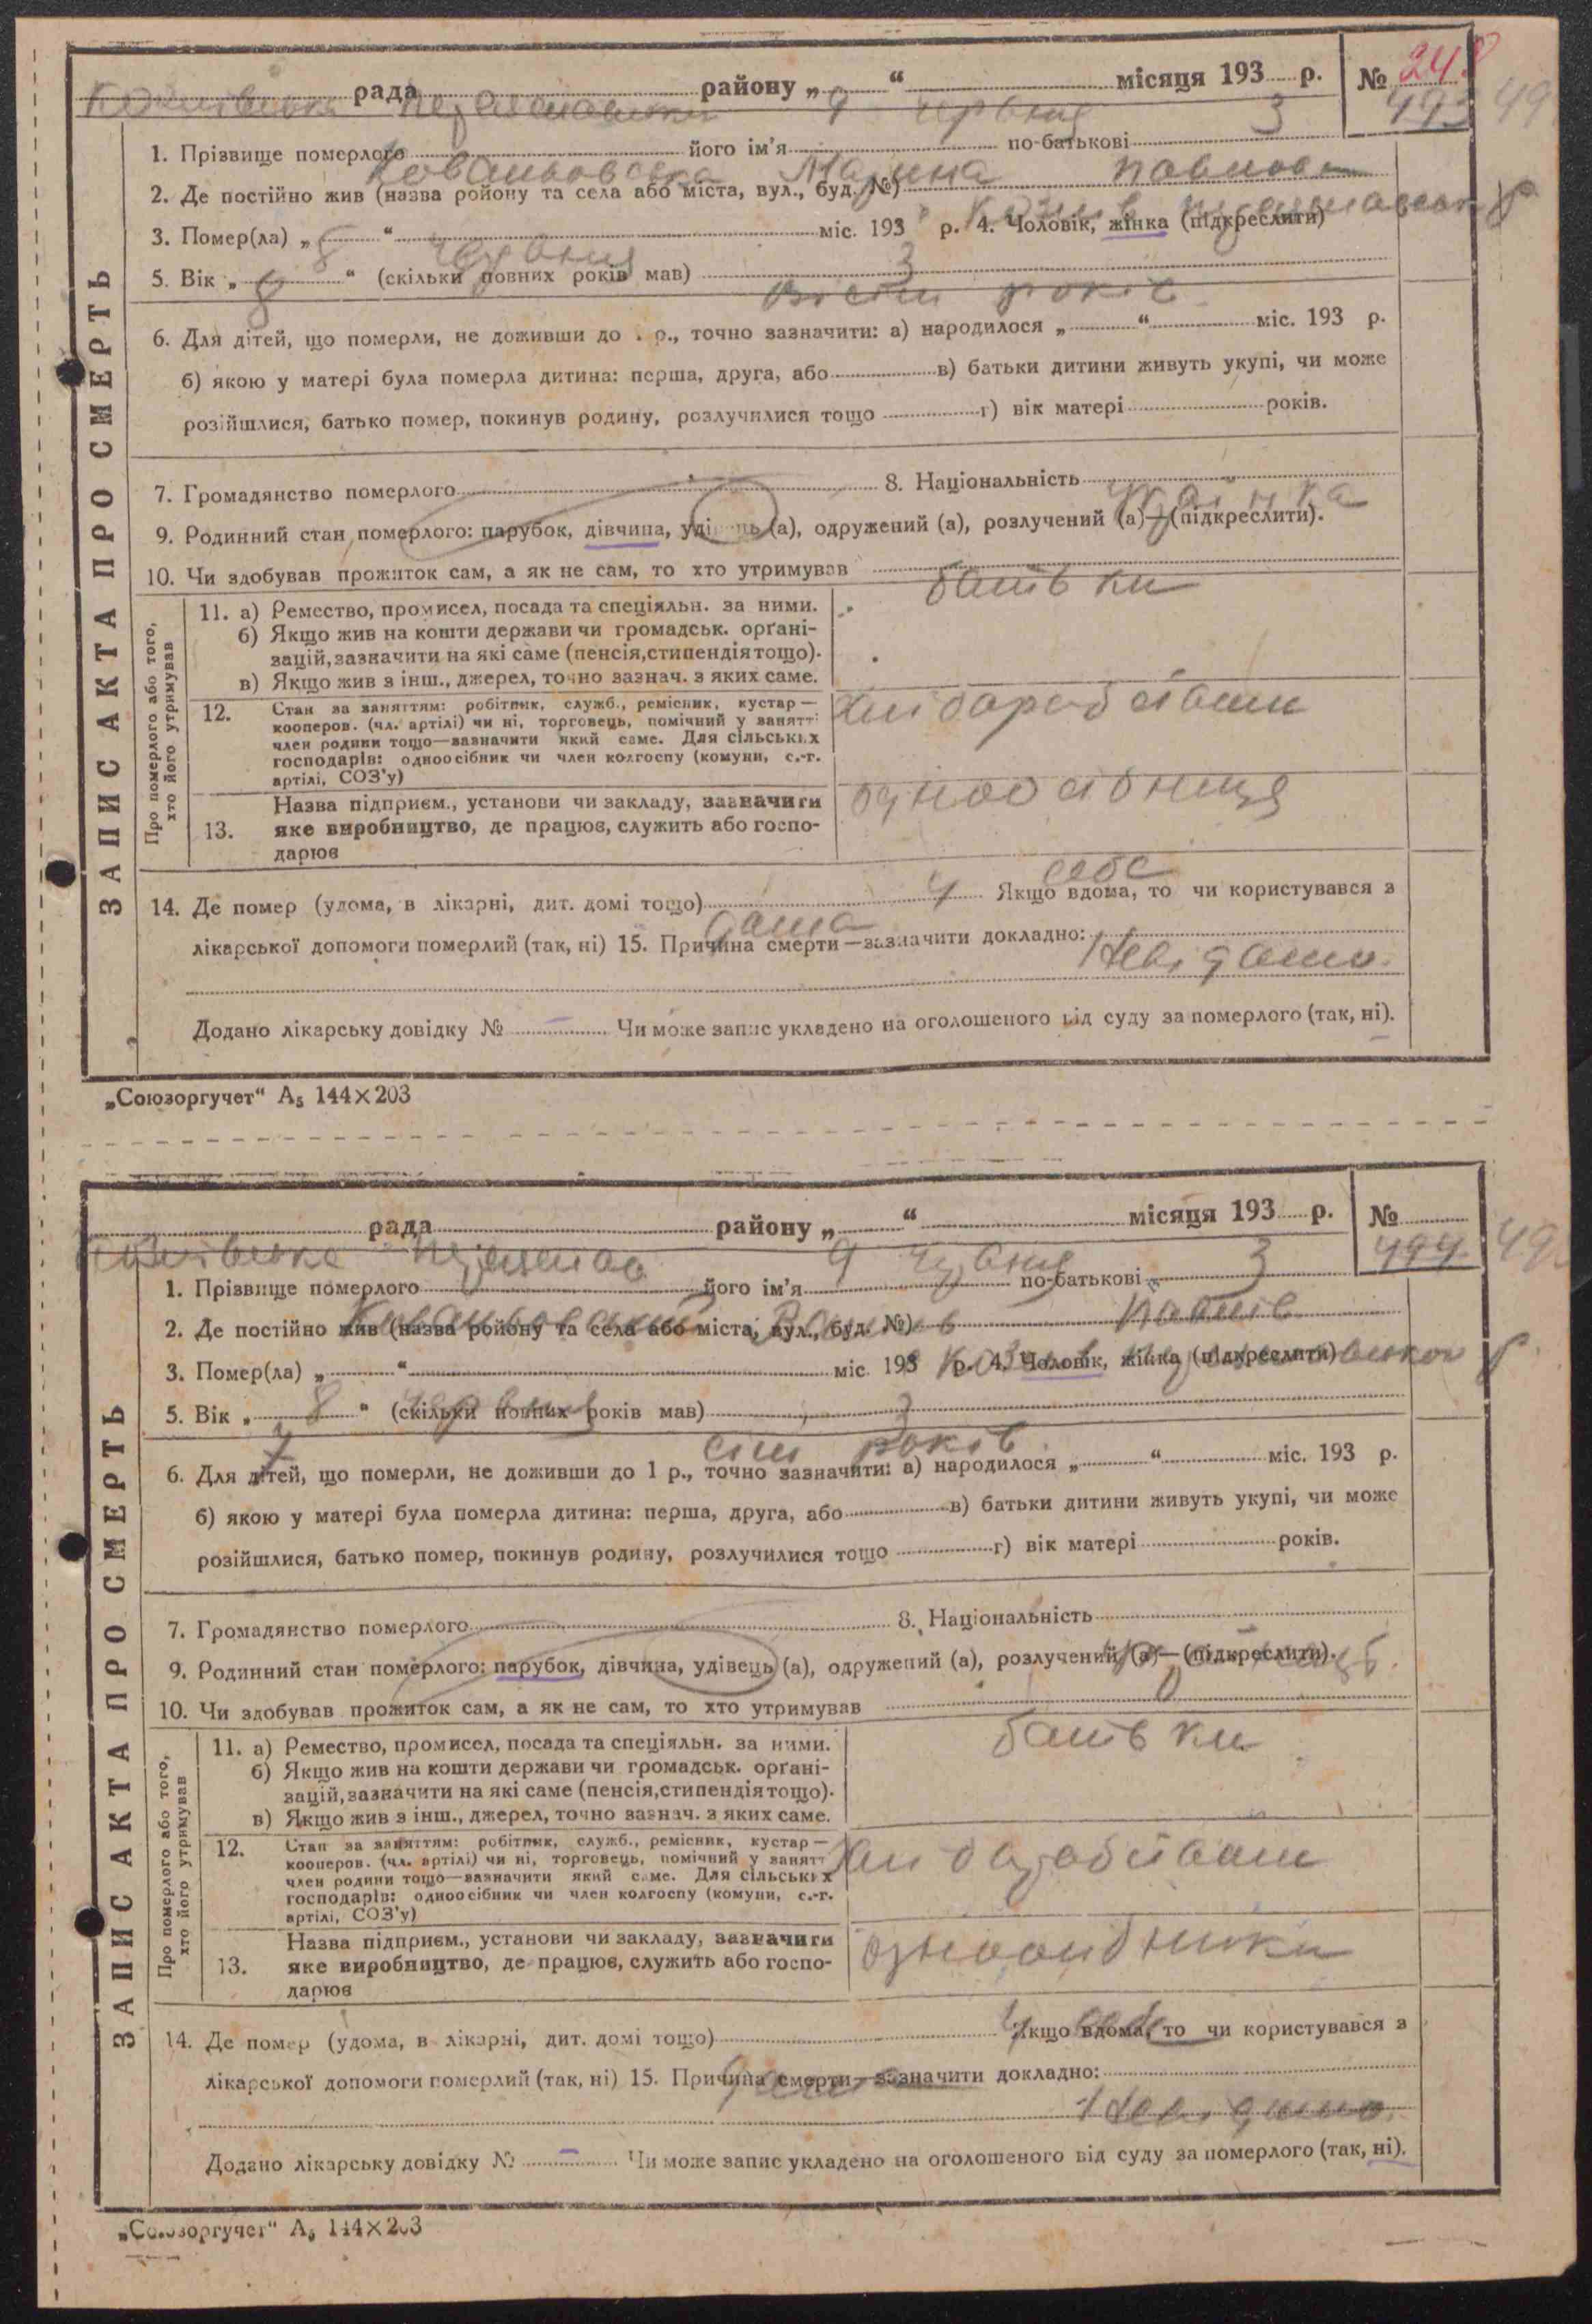 рада району „ “ місяця 193 р. № 248
9 червня 3 493 49
1. Прізвище померлого його ім'я по-батькові
Ковальовська Марина Павловн
2. Де постійно жив (назва ройону та села або міста, вул., буд. №)
3. Помер(ла) „ “ міс. 193 р. 4. Чоловік, жінка (підкреслити)
8 червня 3
5. Вік „ “ (скільки повних років мав)
8 вісім років
6. Для дітей, що померли, не доживши до . р., точно зазначити: а) народилося „ “ міс. 193 р.
б) якою у матері була померла дитина: перша, друга, або в) батьки дитини живуть укупі, чи може
розійшлися, батько помер, покинув родину, розлучилися тощо г) вік матері років.
7. Громадянство померлого 8. Національність
Українка
9. Родинний стан померлого: парубок, дівчина, удівець (а), одружений (а), розлучений (а)—(підкреслити).
10. Чи здобував прожиток сам, а як не сам, то хто утримував
батьки
11. а) Ремество, промисел, посада та спеціяльн. за ними.
б) Якщо жив на кошти держави чи громадськ. орґані-
зацій, зазначити на які саме (пенсія, стипендія тощо).
в) Якщо жив з інш., джерел, точно зазнач. з яких саме.
12. Стан за заняттям: робітник, служб., ремісник, кустар —
кооперов. (чл. артілі) чи ні, торговець, помічний у занятті
член родини тощо—зазначити який саме. Для сільських
господарів: одноосібник чи член колгоспу (комуни, с.-г.
артілі, СОЗ'у)
хліборобством
13. Назва підприєм., установи чи закладу, зазначити
яке виробництво, де працює, служить або госпо-
дарює
одноосібниця
14. Де помер (удома, в лікарні, дит. домі тощо) у себе Якщо вдома, то чи користувався з
дома
лікарської допомоги померлий (так, ні) 15. Причина смерти—зазначити докладно:
Невідомо.
Додано лікарську довідку № — Чи може запис укладено на оголошеного від суду за померлого (так, ні).
ЗАПИС АКТА ПРО СМЕРТЬ
Про померлого або того,
хто його утримував
„Союзоргучет“ А₅ 144×203
рада району „ “ місяця 193 р. №
9 червня 3 494 49
1. Прізвище померлого його ім'я по-батькові
Ковальовський Павлів
2. Де постійно жив (назва ройону та села або міста, вул., буд. №)
3. Помер(ла) „ “ міс. 193 р. 4. Чоловік, жінка (підкреслити)
8 червня 3
5. Вік „ “ (скільки повних років мав)
7 сім років
6. Для дітей, що померли, не доживши до 1 р., точно зазначити: а) народилося „ “ міс. 193 р.
б) якою у матері була померла дитина: перша, друга, або в) батьки дитини живуть укупі, чи може
розійшлися, батько помер, покинув родину, розлучилися тощо г) вік матері років.
7. Громадянство померлого 8. Національність
9. Родинний стан померлого: парубок, дівчина, удівець (а), одружений (а), розлучений (а)—(підкреслити).
10. Чи здобував прожиток сам, а як не сам, то хто утримував
батьки
11. а) Ремество, промисел, посада та спеціяльн. за ними.
б) Якщо жив на кошти держави чи громадськ. орґані-
зацій, зазначити на які саме (пенсія, стипендія тощо).
в) Якщо жив з інш., джерел, точно зазнач. з яких саме.
12. Стан за заняттям: робітник, служб., ремісник, кустар —
кооперов. (чл. артілі) чи ні, торговець, помічний у занятт
член родини тощо—зазначити який саме. Для сільських
господарів: одноосібник чи член колгоспу (комуни, с.-г.
артілі, СОЗ'у)
хліборобством
13. Назва підприєм., установи чи закладу, зазначити
яке виробництво, де працює, служить або госпо-
дарює
одноосібники
14. Де помер (удома, в лікарні, дит. домі тощо) у себе Якщо вдома, то чи користувався з
дома
лікарської допомоги померлий (так, ні) 15. Причина смерти—зазначити докладно:
Невідомо.
Додано лікарську довідку № — Чи може запис укладено на оголошеного від суду за померлого (так, ні).
ЗАПИС АКТА ПРО СМЕРТЬ
Про померлого або того,
хто його утримував
„Союзоргучет“ А₅ 144×203